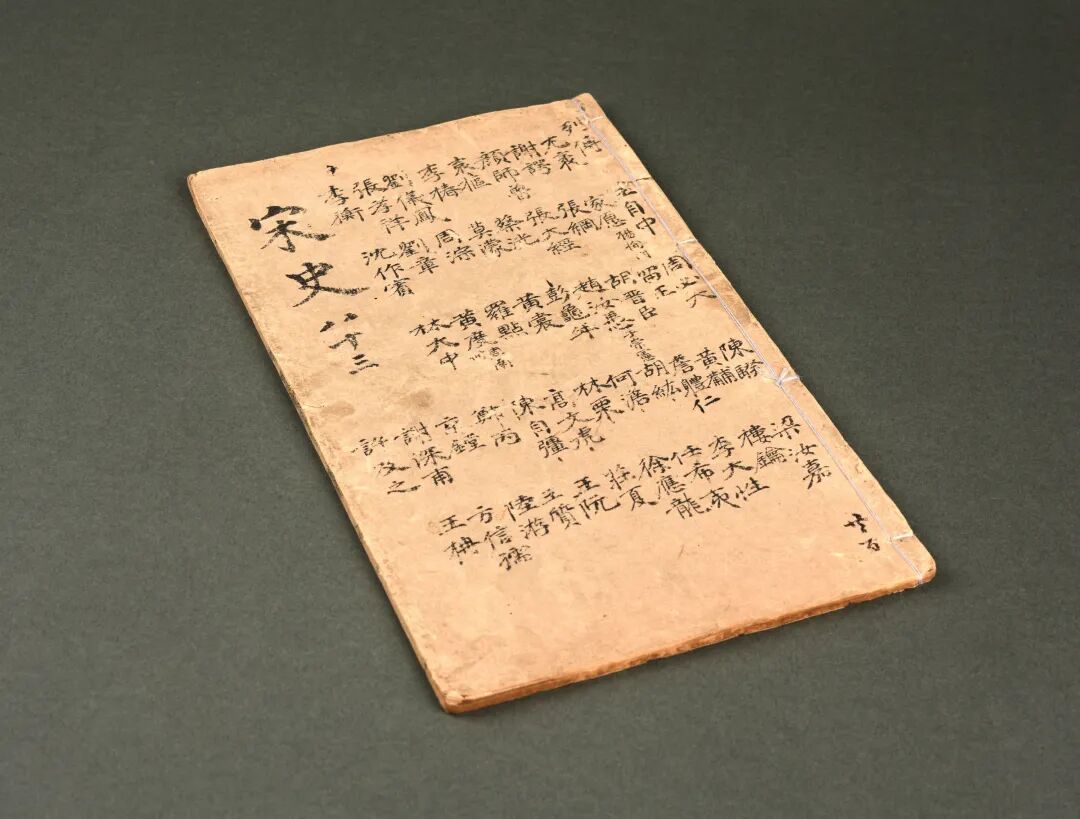 列傳
尤袤
謝諤
顏師魯
袁樞
李椿
劉儀鳳
張孝祥
李衡
王自中
家愿
張綱
張大經
蔡洸
莫濛
周淙
劉章
沈作賓
周必大
留正
胡晉臣
趙汝愚 子崇憲
彭龜年
黃裳
羅點
黃度 周南
林大中
陳騤
黃黼
詹體仁
胡紘
何澹
林栗
高文虎
陳自彊
鄭丙
京鏜
謝深甫
許及之
梁汝嘉
樓鑰
李大性
任希夷
徐應龍
莊夏
王阮
王質
陸游
方信孺
王柟
宋史 八十三